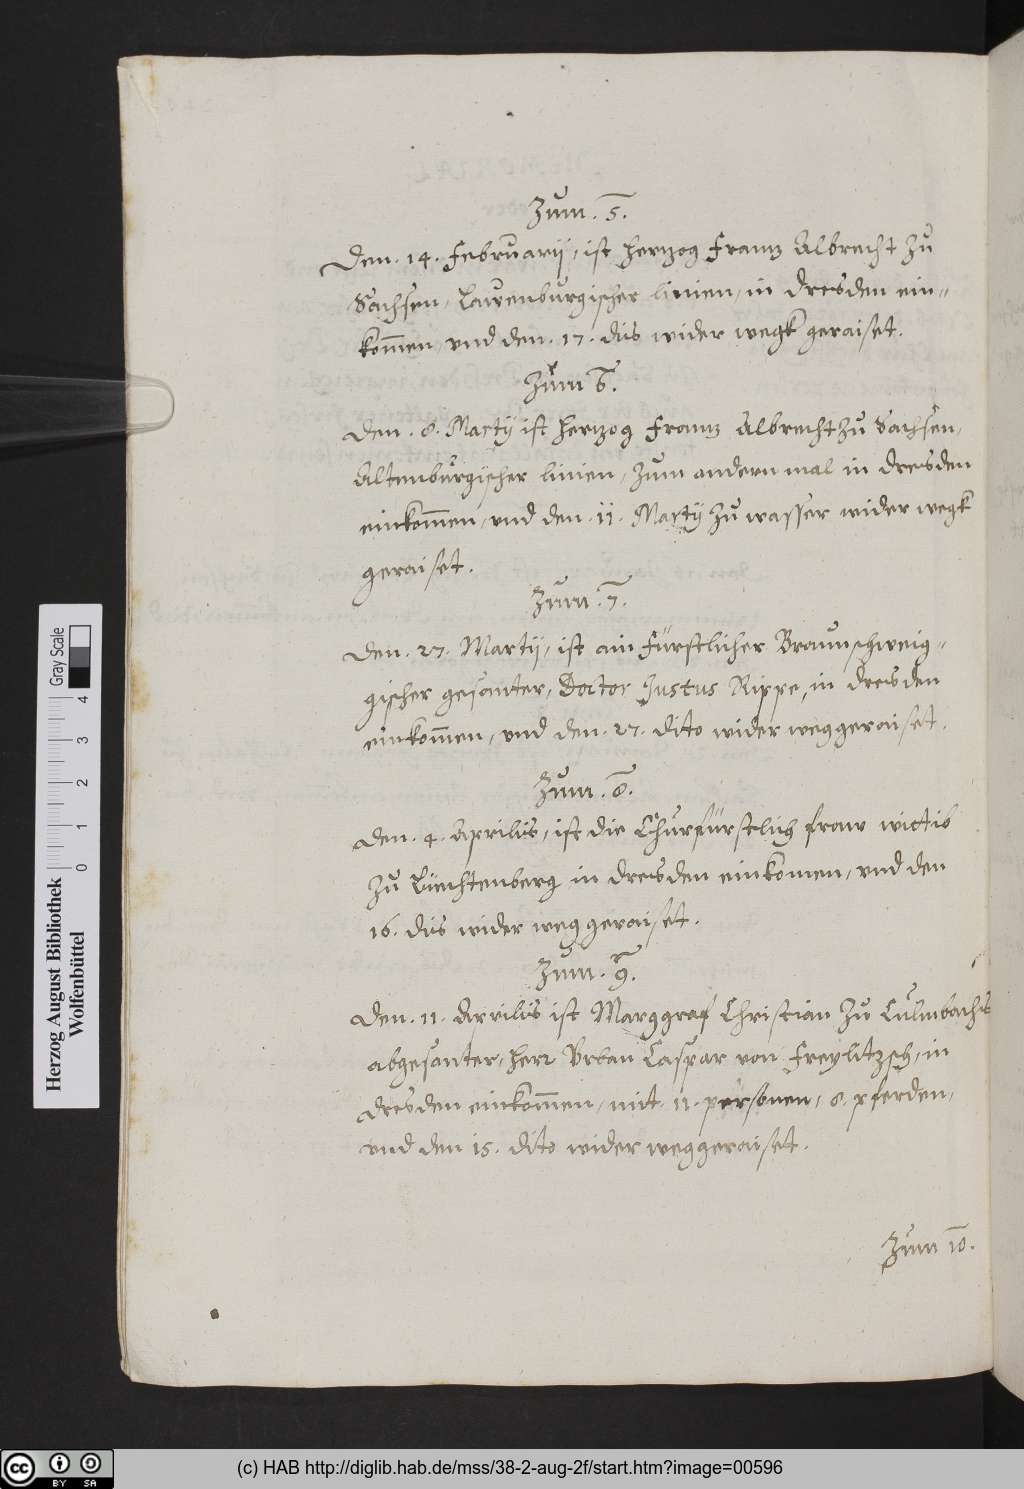 Zum . 5.
Den . 14 . Februarij, ist Hertzog Frantz Albrecht zu
Sachsen, Lauenburgischer linien, in Dresden ein=
kommen, vnd den . 17 . dits wider wegk geraiset.
Zum 6.
Den . 8 . Martij ist Hertzog Frantz Albrecht zu Sachsen,
Altenburgischer linien, zum andern mal in Dresden
einkommen, vnd den . 11 . Martij zu wasser wider wegk
geraiset.
Zum . 7.
Den . 27 . Martij, ist ain Fürstlicher Braunschweig=
gischer gesanter, Doctor Justus Rippe, in Dresden
einkommen, vnd den . 27 . dito wider weggeraiset.
Zum . 8.
Den . 4 . Aprilis, ist die Churfürstlich fraw wittib
zu Liechtenberg in Dresden einkomen, vnd den
16 . dits wider weggeraiset.
Zum . 9.
Den . 11 . Aprilis ist Marggraf Christian zu Culmbachs
abgesanter, Herr Vrban Caspar von Freylitzsch, in
Dresden einkommen, mit . 11 . personen, 8 . pferden,
vnd den 15 . dito wider weggeraiset.
Zum 10.
Gray Scale
0 1 2 3 4
Herzog August Bibliothek
Wolfenbüttel
cc BY SA
(c) HAB http://diglib.hab.de/mss/38-2-aug-2f/start.htm?image=00596